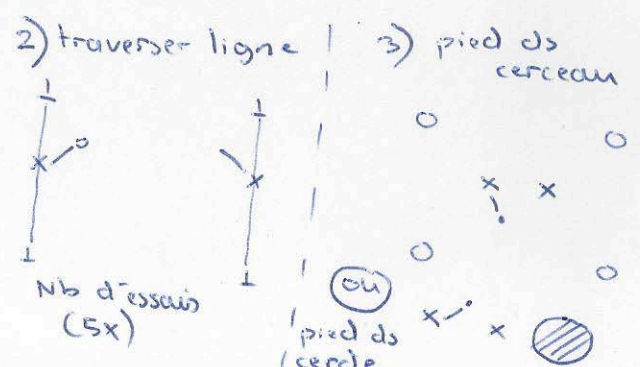 2) traverser ligne
Nb d'essais
(5x)
3) pied ds
cerceau
ou
pied ds
cercle